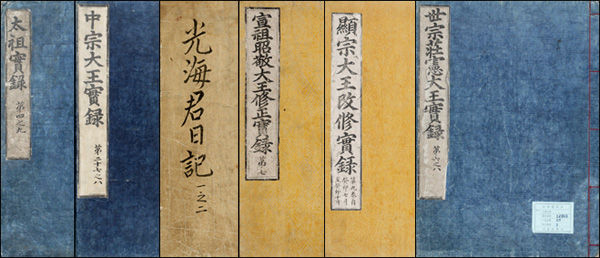 太祖實錄
第四之九
中宗大王實錄
第二十七之八
光海君日記
一之二
宣祖昭敬大王修正實錄
第七
顯宗大王改修實錄
世宗莊憲大王實錄